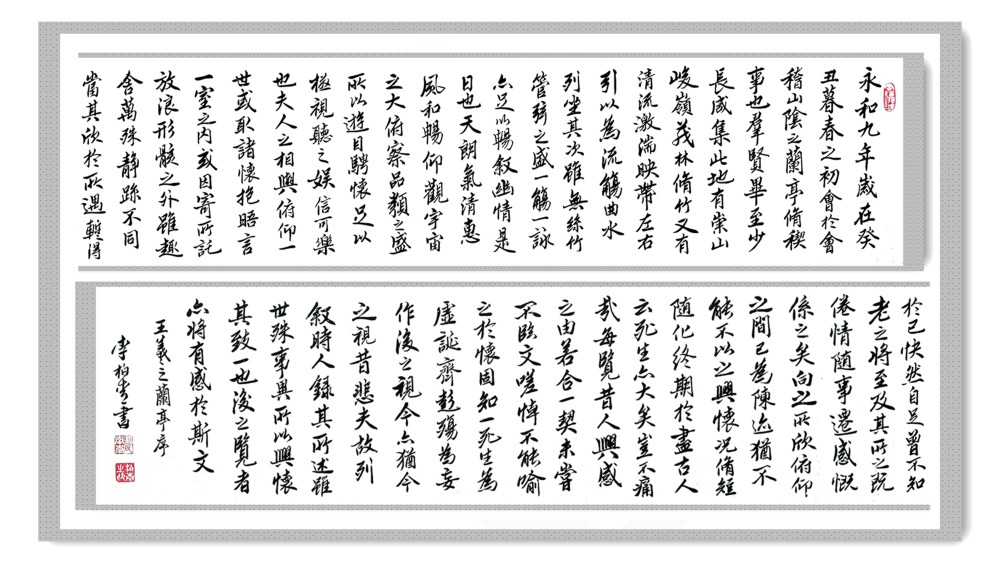 永和九年歲在癸
丑暮春之初會於會
稽山陰之蘭亭脩稧
事也羣賢畢至少
長咸集此地有崇山
峻嶺茂林脩竹又有
清流激湍映帶左右
引以為流觴曲水
列坐其次雖無絲竹
管弦之盛一觴一詠
亦足以暢敘幽情是
日也天朗氣清惠
風和暢仰觀宇宙
之大俯察品類之盛
所以遊目騁懷足以
極視聽之娛信可樂
也夫人之相與俯仰一
世或取諸懷抱晤言
一室之內或因寄所託
放浪形骸之外雖趣
舍萬殊靜躁不同
當其欣於所遇暫得
於己快然自足曾不知
老之將至及其所之既
倦情隨事遷感慨
係之矣向之所欣俯仰
之間已為陳迹猶不
能不以之興懷況脩短
隨化終期於盡古人
云死生亦大矣豈不痛
哉每覽昔人興感
之由若合一契未嘗
不臨文嗟悼不能喻
之於懷固知一死生為
虛誕齊彭殤為妄
作後之視今亦猶今
之視昔悲夫故列
敘時人錄其所述雖
世殊事異所以興懷
其致一也後之覽者
亦將有感於斯文
王羲之蘭亭序
李柏書